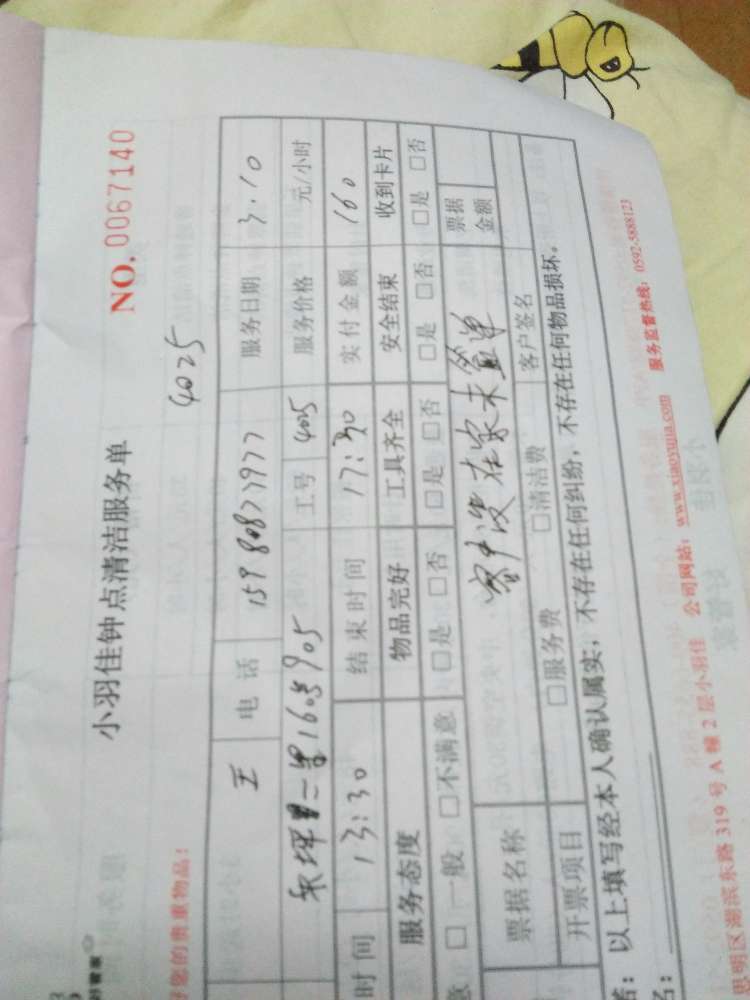 小羽佳钟点清洁服务单
NO. 0067140
4025
您的贵重物品!
王 电话 15980877977 服务日期 3.10
禾坪里二里160号905 工号 4025 服务价格 元/小时
时间 13:30 结束时间 17:30 实付金额 160
服务态度 物品完好 工具齐全 安全结束 收到卡片
意 □一般 □不满意 □是 □否 □是 □否 □是 □否 □是 □否
票据名称 客户没在家未签单 票据金额
开票项目 □服务费 □清洁费 客户签名
以上填写经本人确认属实,不存在任何纠纷,不存在任何物品损坏。
思明区湖滨东路319号A幢2层小羽佳 公司网站:www.xiaoyujia.com 服务监督热线:0592-5888123